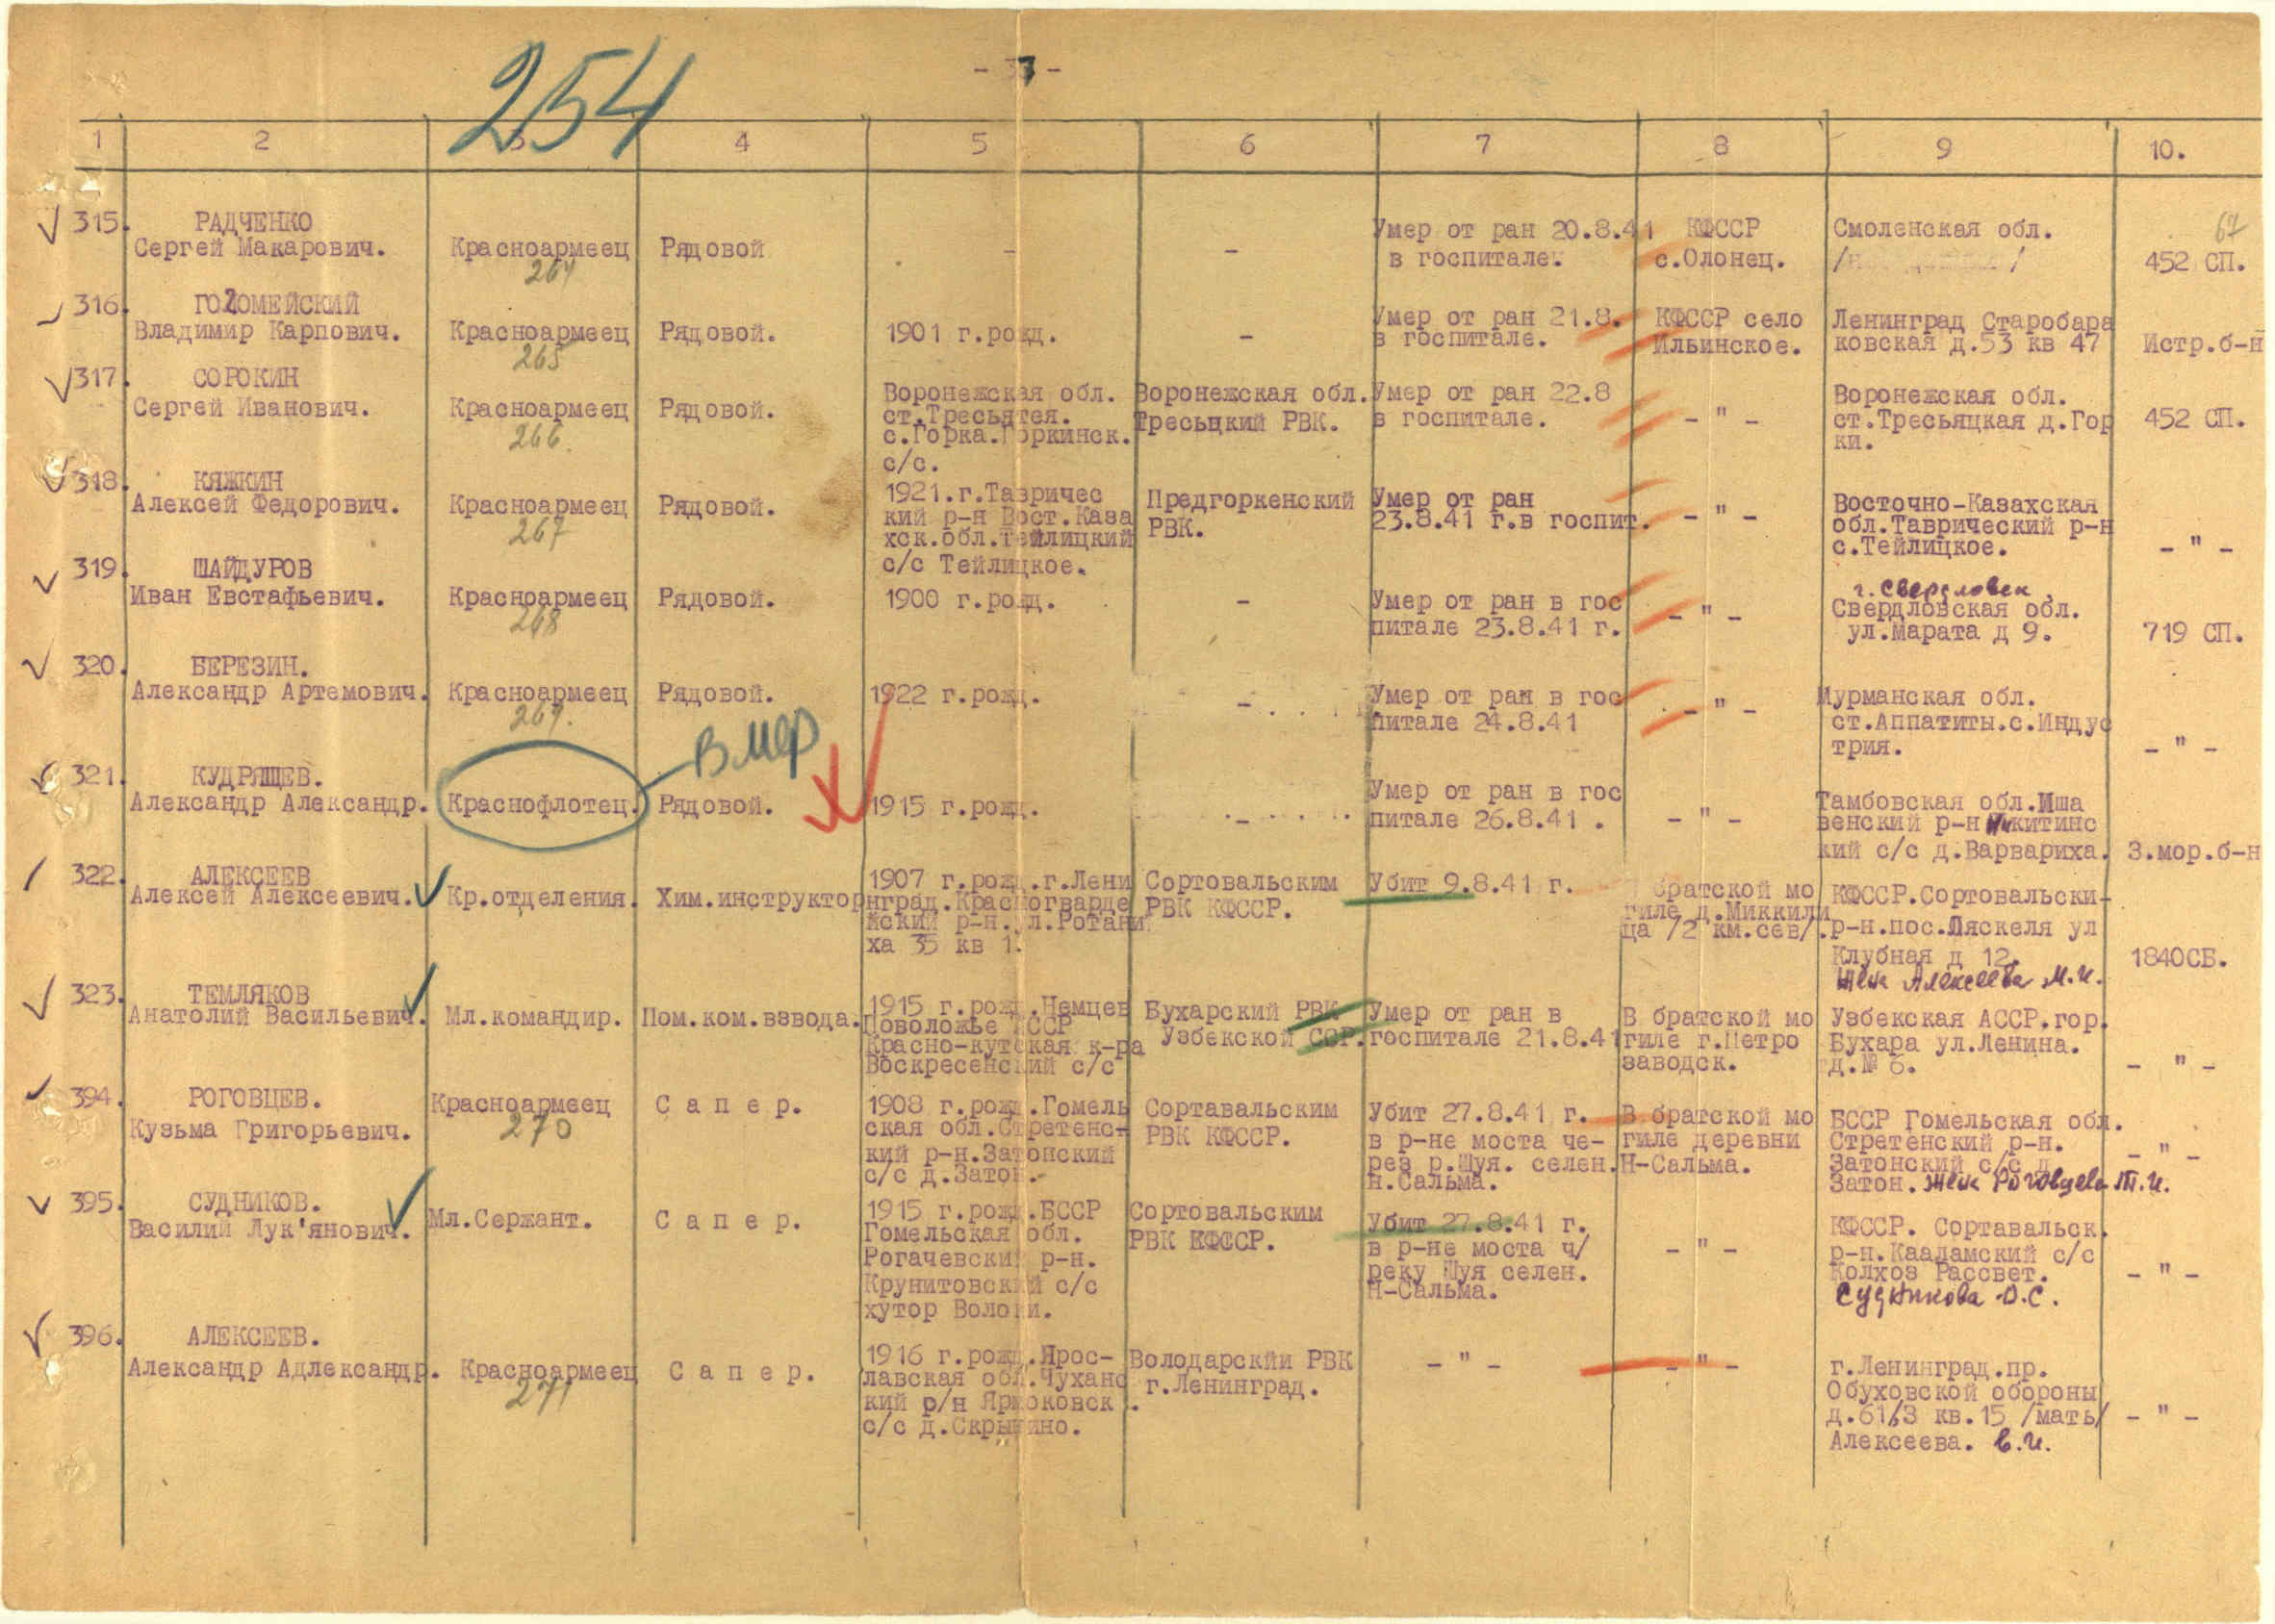 254
1 2 3 4 5 6 7 8 9 10.
67
315. РАДЧЕНКО
Сергей Макарович. Красноармеец Рядовой - - Умер от ран 20.8.41 в госпитале. КФССР с.Олонец. Смоленская обл. 452 СП.
264
316. ГОЛОМЕЙСКИЙ
Владимир Карпович. Красноармеец Рядовой. 1901 г.рожд. - Умер от ран 21.8. в госпитале. КФССР село Ильинское. Ленинград Старобара ковская д.53 кв 47 Истр.б-н
265
317. СОРОКИН
Сергей Иванович. Красноармеец Рядовой. Воронежская обл. ст.Тресьятея. с.Горка.Горкинск. с/с. Воронежская обл. Тресьцкий РВК. Умер от ран 22.8 в госпитале. - " - Воронежская обл. ст.Тресьяцкая д.Гор ки. 452 СП.
266.
318. КЯЖКИН
Алексей Федорович. Красноармеец Рядовой. 1921.г.Тавричес кий р-н Вост.Каза хск.обл.Тейлицкий с/с Тейлицкое. Предгоркенский РВК. Умер от ран 23.8.41 г.в госпит. - " - Восточно-Казахская обл.Таврический р-н с.Тейлицкое. - " -
267
319. ШАЙДУРОВ
Иван Евстафьевич. Красноармеец Рядовой. 1900 г.рожд. - Умер от ран в гос питале 23.8.41 г. - " - г. Свердловск Свердловская обл. ул.Марата д 9. 719 СП.
268
320. БЕРЕЗИН.
Александр Артемович. Красноармеец Рядовой. 1922 г.рожд. - Умер от ран в гос питале 24.8.41 - " - Мурманская обл. ст.Аппатиты.с.Индус трия. - " -
269.
В мер
321. КУДРЯШЕВ.
Александр Александр. Краснофлотец. Рядовой. 1915 г.рожд. - Умер от ран в гос питале 26.8.41 . - " - Тамбовская обл.Иша венский р-н Никитинс кий с/с д.Варвариха. 3.мор.б-н
322. АЛЕКСЕЕВ
Алексей Алексеевич. Кр.отделения. Хим.инструктор 1907 г.рожд.г.Лени нград.Красногварде йский р-н.ул.Ротани ха 35 кв 1. Сортовальским РВК КФССР. Убит 9.8.41 г. братской мо гиле д.Миккили ца /2 км.сев/. КФССР.Сортовальски- р-н.пос.Ляскеля ул Клубная д 12. Жена Алексеева М.И. 1840СБ.
323. ТЕМЛЯКОВ
Анатолий Васильевич. Мл.командир. Пом.ком.взвода. 1915 г.рожд.Немцев Поволожье АССР Красно-кутская к-ра Воскресенский с/с Бухарский РВК Узбекской ССР. Умер от ран в госпитале 21.8.41 В братской мо гиле г.Петро заводск. Узбекская АССР.гор. Бухара ул.Ленина. д.№ 6. - " -
394. РОГОВЦЕВ.
Кузьма Григорьевич. Красноармеец С а п е р. 1908 г.рожд.Гомель ская обл.Стретенс- кий р-н.Затонский с/с д.Затон.- Сортавальским РВК КФССР. Убит 27.8.41 г. в р-не моста че- рез р.Шуя. селен. Н.Сальма. В братской мо гиле деревни Н-Сальма. БССР Гомельская обл. Стретенский р-н. Затонский с/с д Затон. Жена Роговцева Т.И. - " -
270
395. СУДНИКОВ.
Василий Лук'янович. Мл.Сержант. С а п е р. 1915 г.рожд.БССР Гомельская обл. Рогачевский р-н. Крунитовский с/с хутор Вологи. Сортовальским РВК КФССР. Убит 27.8.41 г. в р-не моста ч/ реку Шуя селен. Н-Сальма. - " - КФССР. Сортавальск. р-н.Кааламский с/с Колхоз Рассвет. Судникова О.С. - " -
396. АЛЕКСЕЕВ.
Александр Адлександр. Красноармеец С а п е р. 1916 г.рожд.Ярос- лавская обл.Чуханс кий р/н Ярмоковск . с/с д.Скрынино. Володарскйи РВК г.Ленинград. - " - - " - г.Ленинград.пр. Обуховской обороны д.61/3 кв.15 /мать/ Алексеева. Е.И. - " -
271